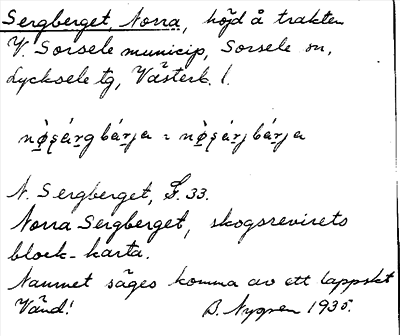 Sergberget, Norra, höjd å trakten
V. Sorsele municip, Sorsele sn,
Lycksele tg, Västerb. l.
N. Sergberget, G. 33.
Norra Sergberget, skogsrevirets
block-karta.
Namnet säges komma av ett lappskt
Vänd! B. Nygren 1935.